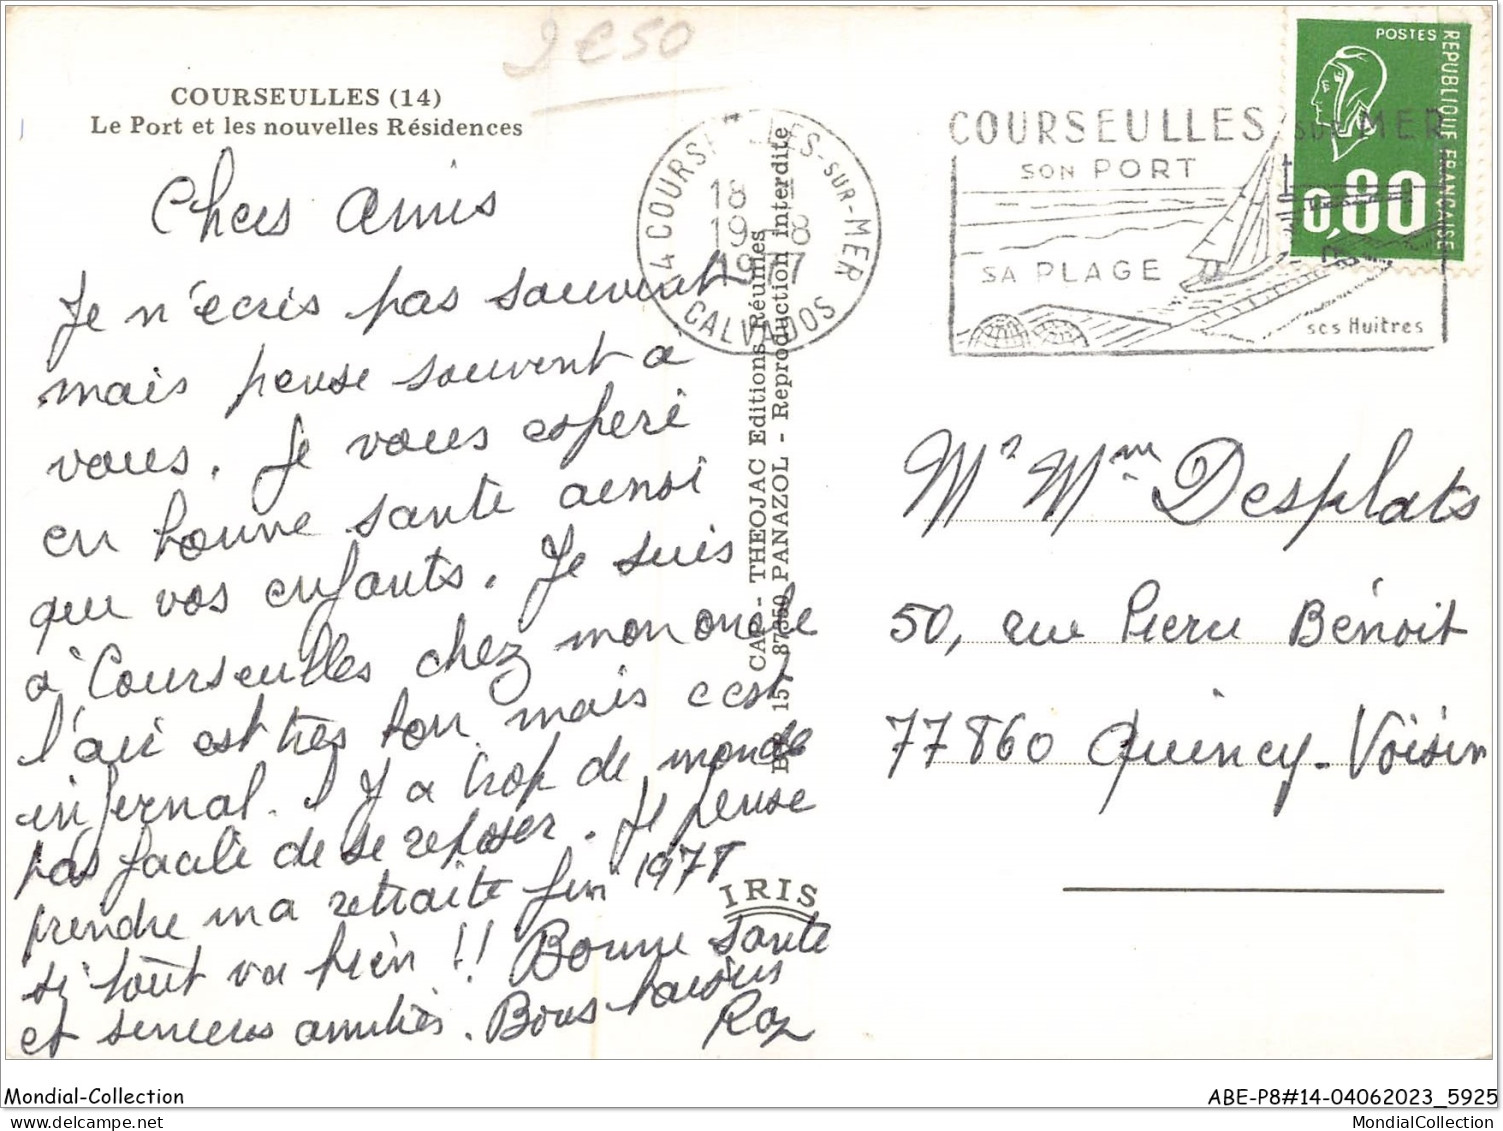 2€50
COURSEULLES (14)
Le Port et les nouvelles Résidences
Chers amis
Je n'écris pas souvent
mais pense souvent à
vous. Je vous espère
en bonne santé ainsi
que vos enfants. Je suis
à Courseulles chez mon oncle
l'air est très bon mais c'est
infernal. Il y a trop de monde
pas facile de se reposer. Je pense
prendre ma retraite fin 1977
si tout va bien !! Bonne santé
et sincères amitiés. Bons baisers
14 COURSEULLES-SUR-MER
18
19 - 8
1977
CALVADOS
COURSEULLES SUR MER
SON PORT
SA PLAGE
ses Huîtres
POSTES
REPUBLIQUE FRANÇAISE
0,80
CAP - THEOJAC Editions Réunies
87350 PANAZOL - Reproduction interdite
IRIS
Mr Mme Desplats
50, rue Pierre Bénoit
77860 Quincy-Voisin
Mondial-Collection
ABE-P8#14-04062023_5925
MondialCollection